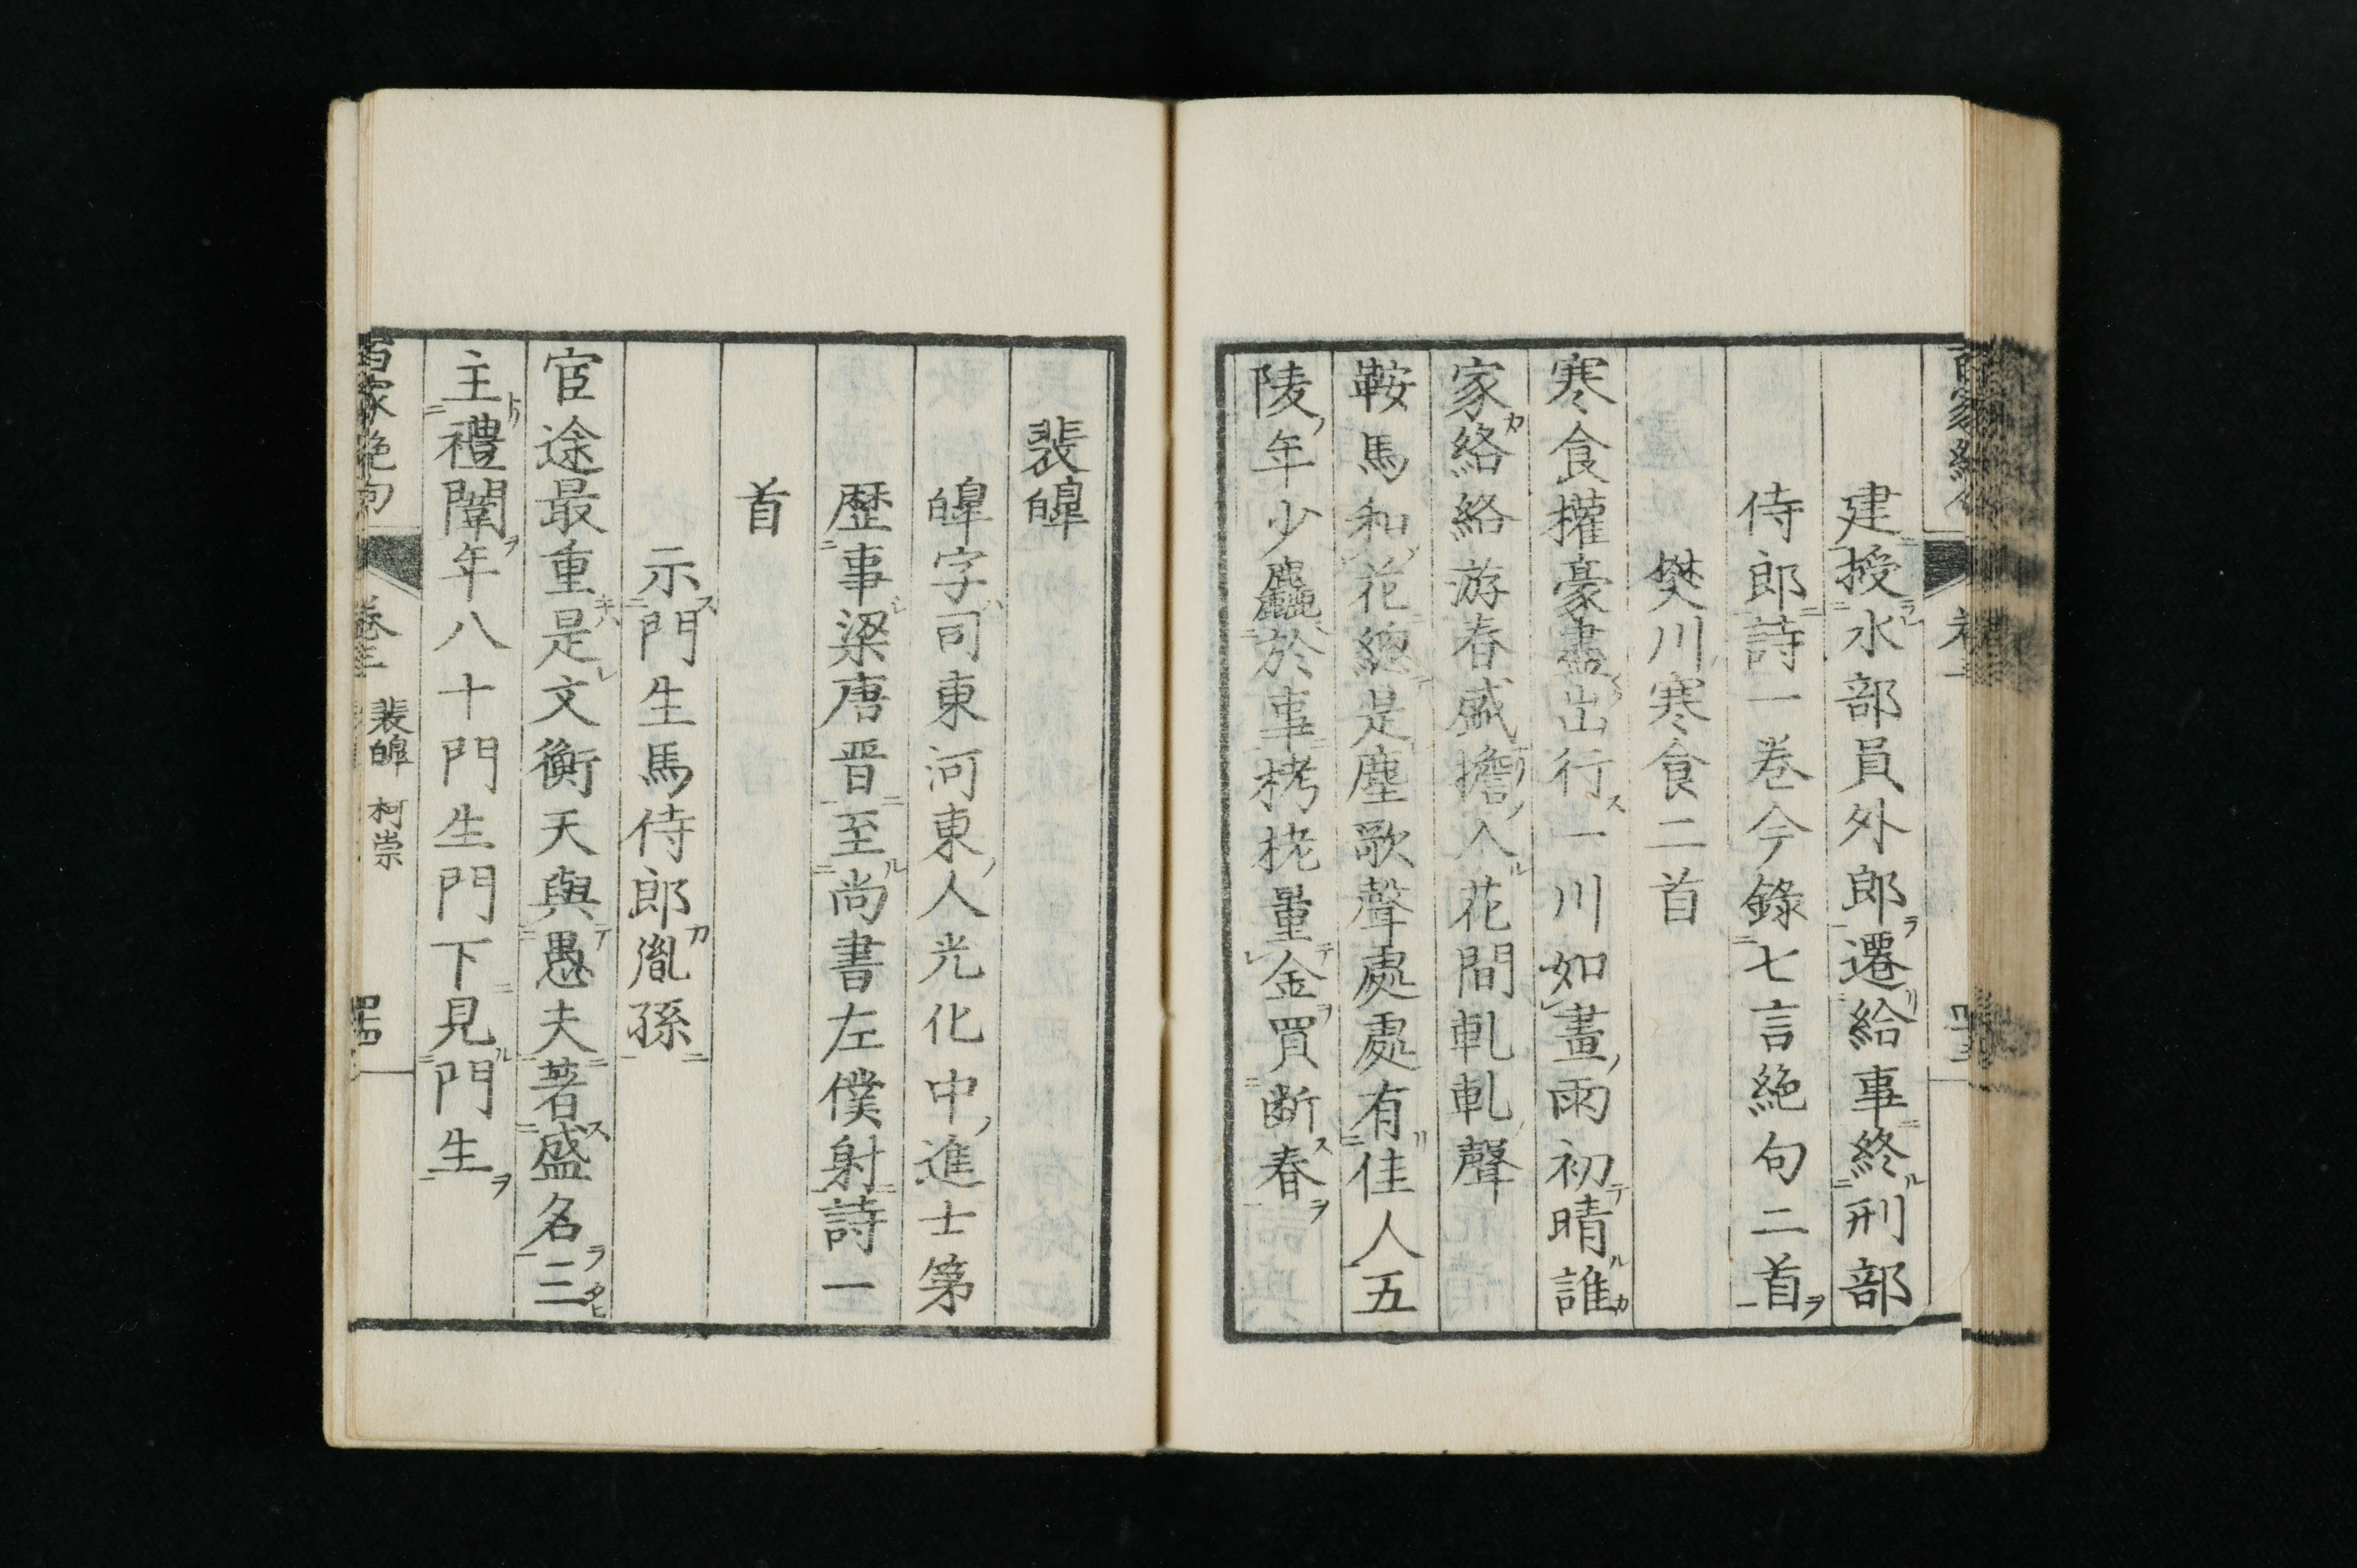 建授水部員外郎遷給事終刑部
侍郎詩一卷今錄七言絶句二首
樊川寒食二首
寒食權豪盡出行一川如畫雨初晴誰
家絡絡游春盛擔入花間軋軋聲
鞍馬和花總是塵歌聲處處有佳人五
陵年少麤於事栲栳量金買断春
裴皥
皥字司東河東人光化中進士第
歴事梁唐晋至尚書左僕射詩一
首
示門生馬侍郎胤孫
宦途最重是文衡天與愚夫著盛名三
主禮闈年八十門生門下見門生
百家絶句 卷三 裴皥 柯崇